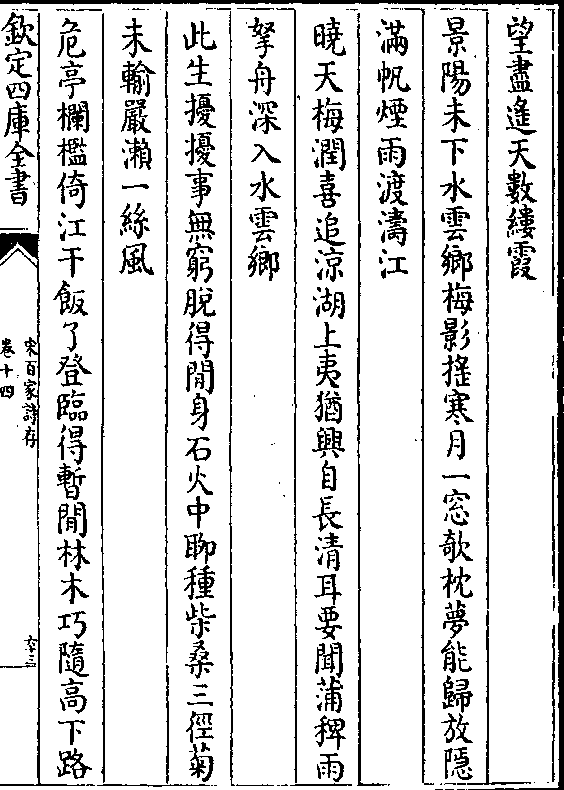 望盡遙天數縷霞
景陽未下水雲鄉梅影搖寒月一窓欹枕夢能歸放隱
滿帆煙雨渡濤江
曉天梅潤喜追涼湖上夷猶興自長清耳要聞蒲稗雨
拏舟深入水雲鄉
此生擾擾事無窮脫得閒身石火中聊種柴桑三徑菊
未輸嚴瀨一絲風
危亭欄檻倚江干飯了登臨得暫閒林木巧隨高下路
欽定四庫全書
宋百家詩存
卷十四
六十三